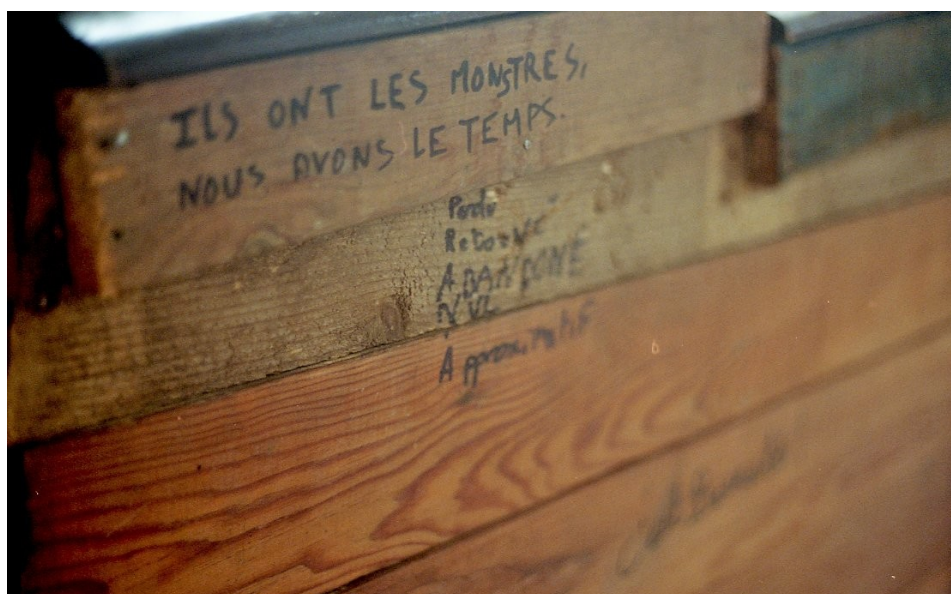 ILS ONT LES MONSTRES,
NOUS AVONS LE TEMPS.
RetourNé
ABANDONÉ
NUL
Approximatif